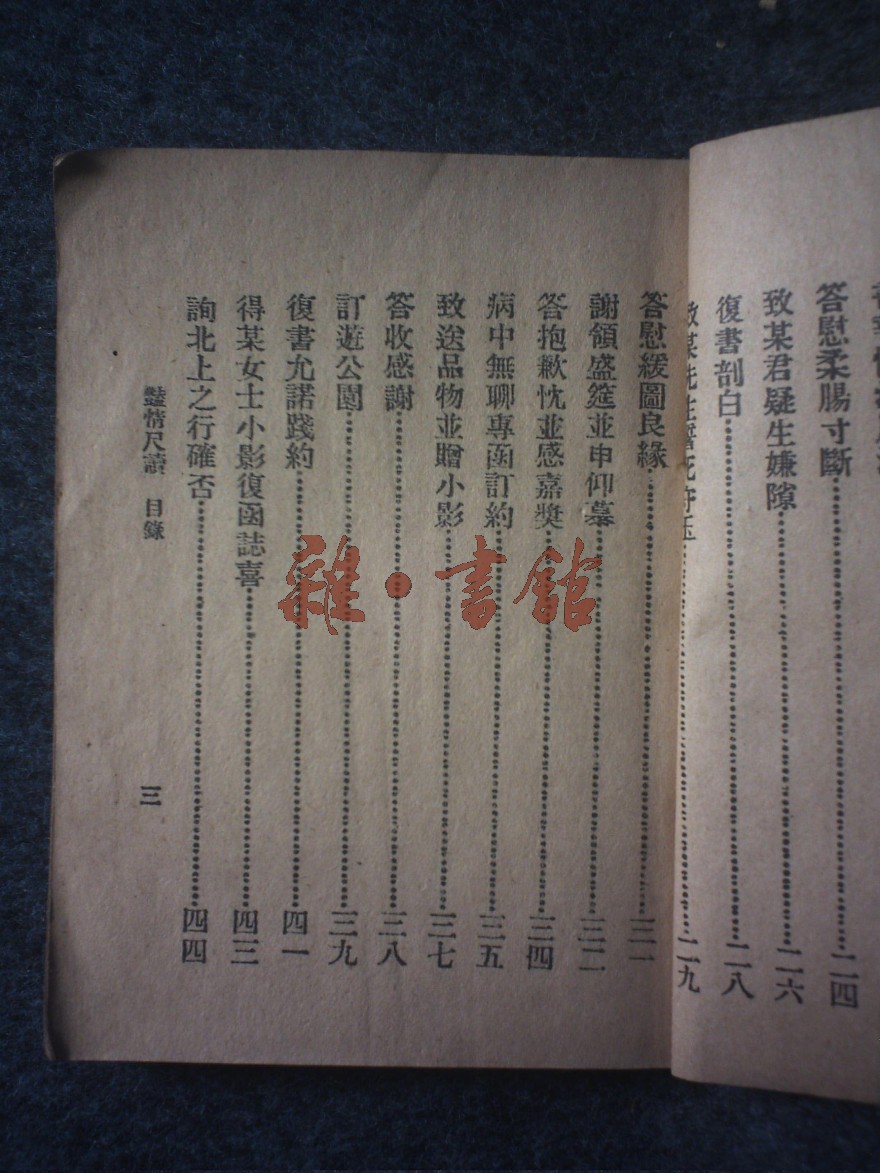 答慰柔腸寸斷……二四
致某君疑生嫌隙……二六
復書剖白……二八
致某先生誓死守玉……二九
答慰緩圖良緣……三一
謝領盛筵並申仰慕……三二
答抱歉忱並感嘉獎……三四
病中無聊專函訂約……三五
致送品物並贈小影……三七
答收感謝……三八
訂遊公園……三九
復書允諾踐約……四一
得某女士小影復函誌喜……四三
詢北上之行確否……四四
豔情尺牘 目錄
三
雜·書館